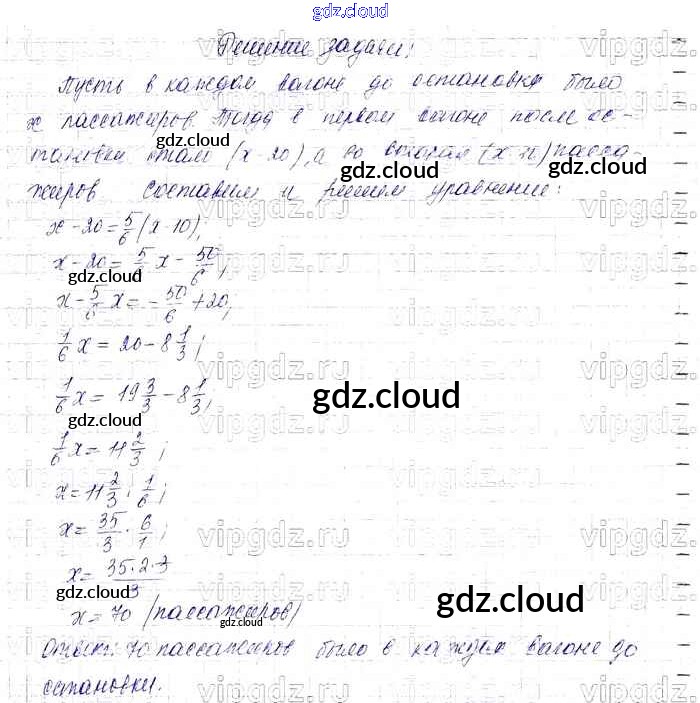 gdz.cloud
Решение задачи:
Пусть в каждом вагоне до остановки было
x пассажиров. Тогда в первом вагоне после ос-
тановки стало (x-20), а во втором (x- ) пасса-
жиров Составим и решим уравнение:
x-20=5/6(x-10);
x-20=5/6x-50/6;
x-5/6x=-50/6+20;
1/6x=20-8 1/3;
1/6x=19 3/3-8 1/3;
1/6x=11 2/3;
x=11 2/3:1/6;
x=35/3·6/1;
x=35·2·3/3
x=70 (пассажиров)
Ответ: 70 пассажиров было в каждом вагоне до
остановки.
gdz.cloud
gdz.cloud
gdz.cloud
gdz.cloud
gdz.cloud
gdz.cloud
gdz.cloud
gdz.cloud
gdz.cloud
vipgdz.ru